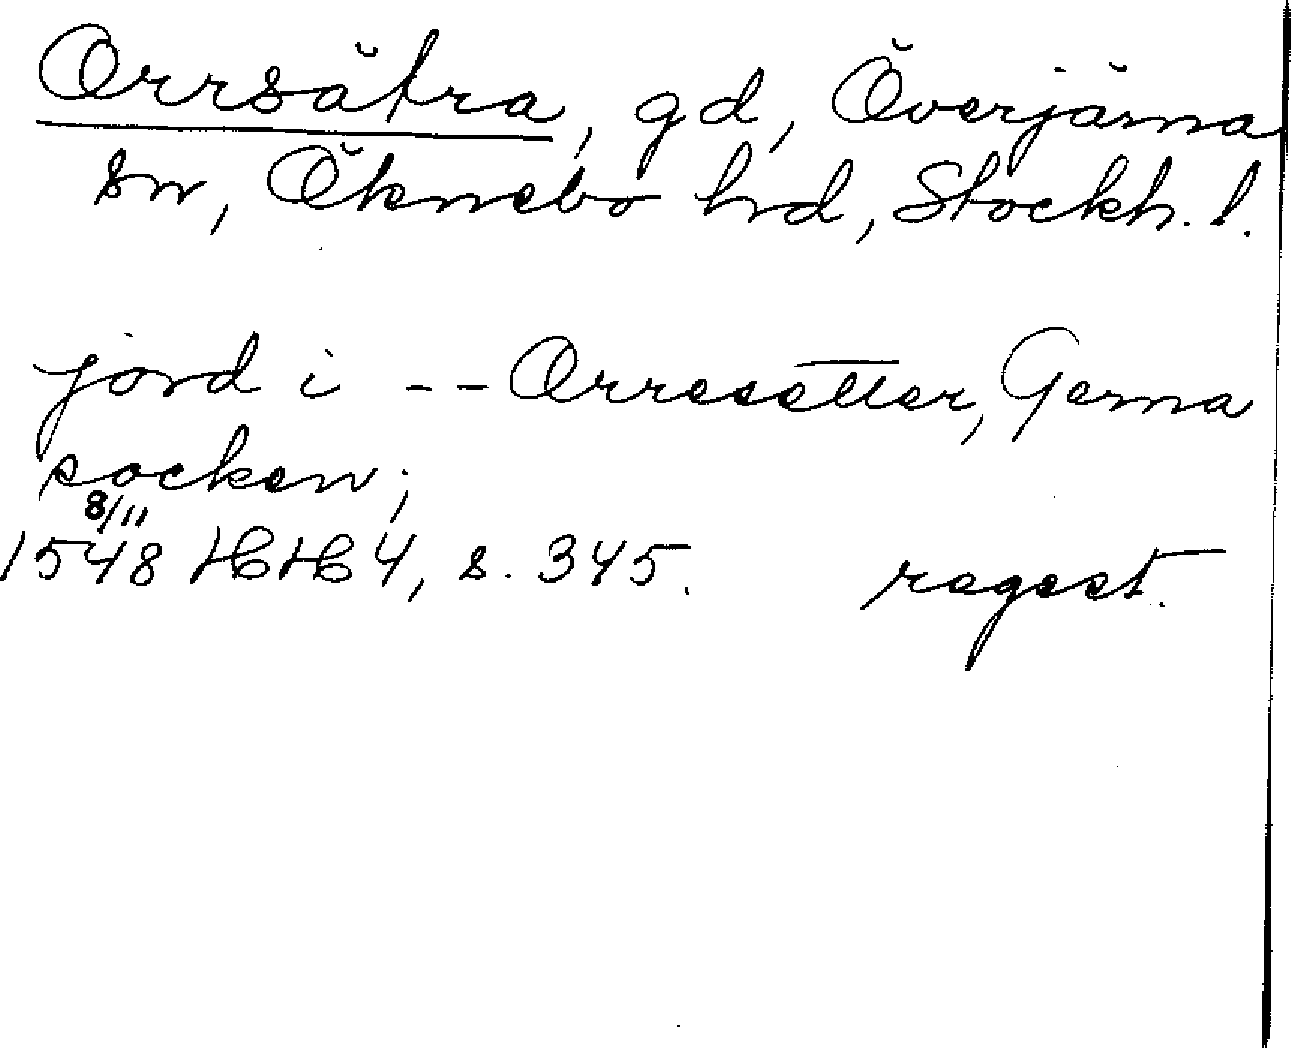 Orrsätra, gd, Överjärna
sn, Öknebo hd, Stockh. l.
jord i -- Orresetter, Gerna
socken;
8/11
1548 HH 4, s. 345. regest.